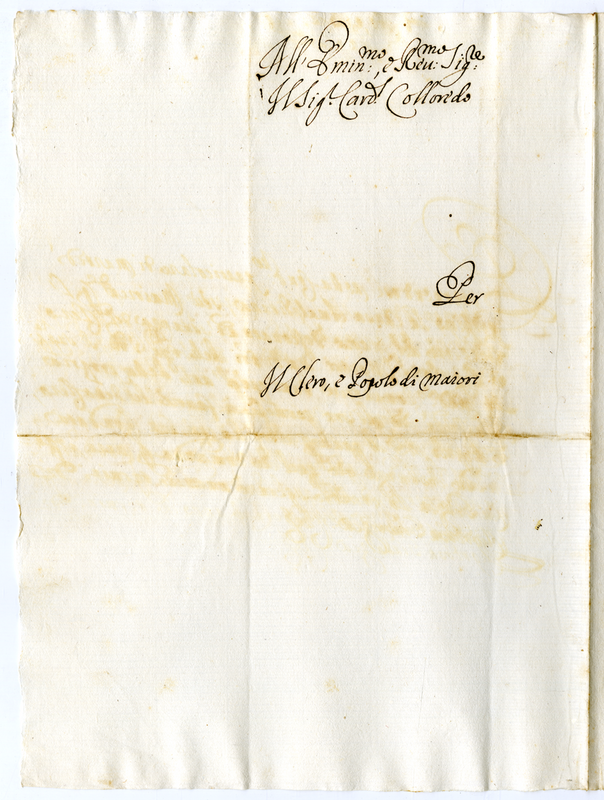 All' Emin:mo, e Reu:mo Sig:re
Il Sig.r Card.l Colloredo
Per
Il Clero, e Popolo di maiori